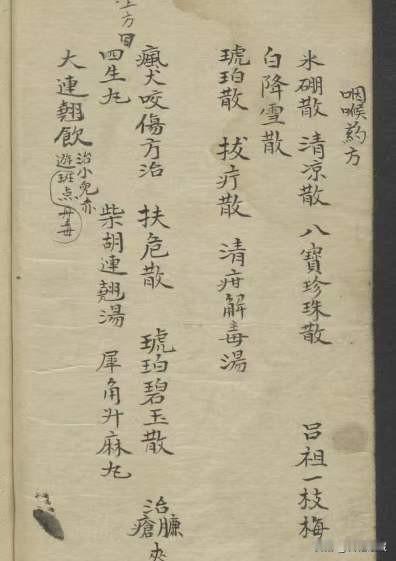 咽喉葯方
氷硼散 清凉散 八寳珍珠散 吕祖一枝梅
白降雪散
琥珀散 拔疔散 清疳解毒湯
瘋犬咬傷方治 扶危散 琥珀碧玉散
治臁瘡
四生丸 柴胡連翹湯 犀角升麻丸
大連翹飲
治小兒赤
遊班点丹毒